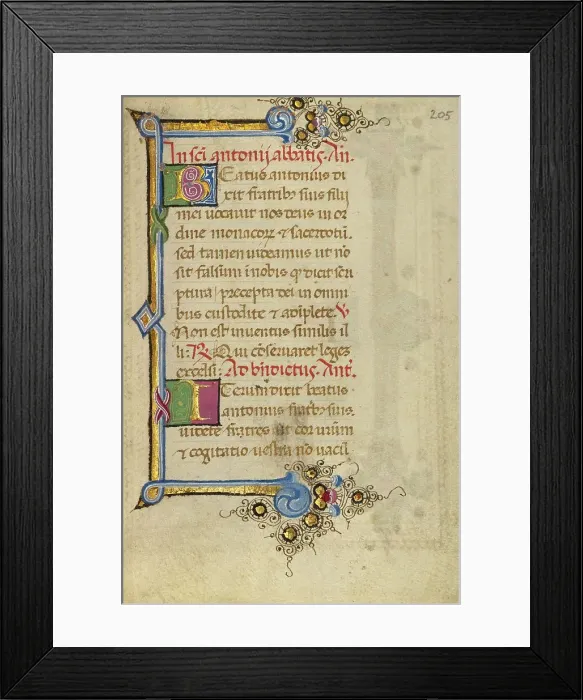 205
In sci antonij abbatis. An.
Beatus antonius di
xit fratribꝫ suis filij
mei uocauit nos deus in or
dine monacoꝝ ⁊ sacerdotū.
sed tamen uideamus ut nō
sit falsum ī nobis qđ dicit scri
ptura precepta dei in omni
bus custodite ⁊ adiplete. V
Non est inuentus similis il
li: R Qui cōseruaret legeꝫ
excelsi: Ad bn̄dictus. Ant.
Iterum dixit beatus
antonius fratbꝫ suis.
uidete fratres ut cor unūm
⁊ cogitatio uestra nō uacil